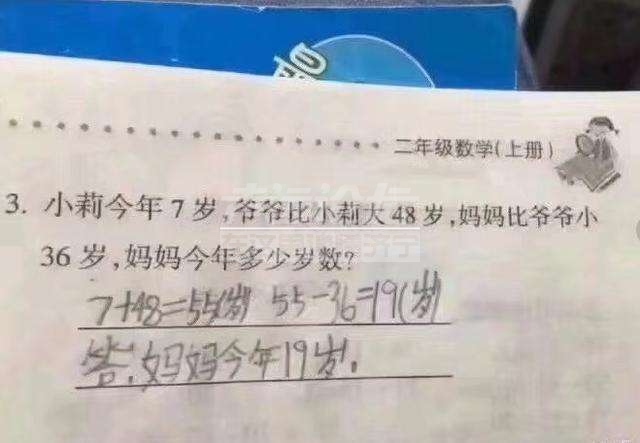 二年级数学(上册)
3. 小莉今年7岁,爷爷比小莉大48岁,妈妈比爷爷小
36岁,妈妈今年多少岁数?
7+48=55(岁) 55-36=19(岁)
答:妈妈今年19岁.